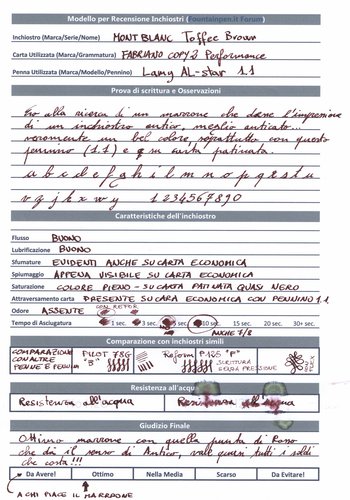 Modello per Recensione Inchiostri (Fountainpen.it Forum)
Inchiostro (Marca/Serie/Nome) MONT BLANC Toffee Brown
Carta Utilizzata (Marca/Grammatura) FABRIANO COPY 2 Performance
Penna Utilizzata (Marca/Modello/Pennino) Lamy AL-star 1.1
Prova di scrittura e Osservazioni
Ero alla ricerca di un marrone che desse l'impressione
di un inchiostro antico, meglio anticato...
veramente un bel colore soprattutto con questo
pennino (1.1) e su carta patinata.
a b c d e f g h i l m n o p q r s t u
v y j k x w y 1 2 3 4 5 6 7 8 9 0
Caratteristiche dell'inchiostro
Flusso BUONO
Lubrificazione BUONO
Sfumature EVIDENTI ANCHE SU CARTA ECONOMICA
Spiumaggio APPENA VISIBILE SU CARTA ECONOMICA
Saturazione COLORE PIENO - SU CARTA PATINATA QUASI NERO
Attraversamento carta PRESENTE SU CARTA ECONOMICA CON PENNINO 1.1
Odore ASSENTE
Tempo di Asciugatura 1 sec. 3 sec. 10 sec. 15 sec. 20 sec. 30+ sec.
ANCHE 7/8
Comparazione con inchiostri simili
COMPARAZIONE CON ALTRE PENNE E PENNINI
PILOT 78G "B"
Reform P.125 "P" SCRITTURA SENZA PRESSIONE
CON FLEX
Resistenza all'acqua
Resistenza all'acqua Resistenza all'acqua
Giudizio Finale
Ottimo marrone con quella punta di Rosso
che dà il senso di Antico, vale quasi tutti i soldi
che costa!!!
Da Avere! Ottimo Nella Media Scarso Da Evitare!
A CHI PIACE IL MARRONE